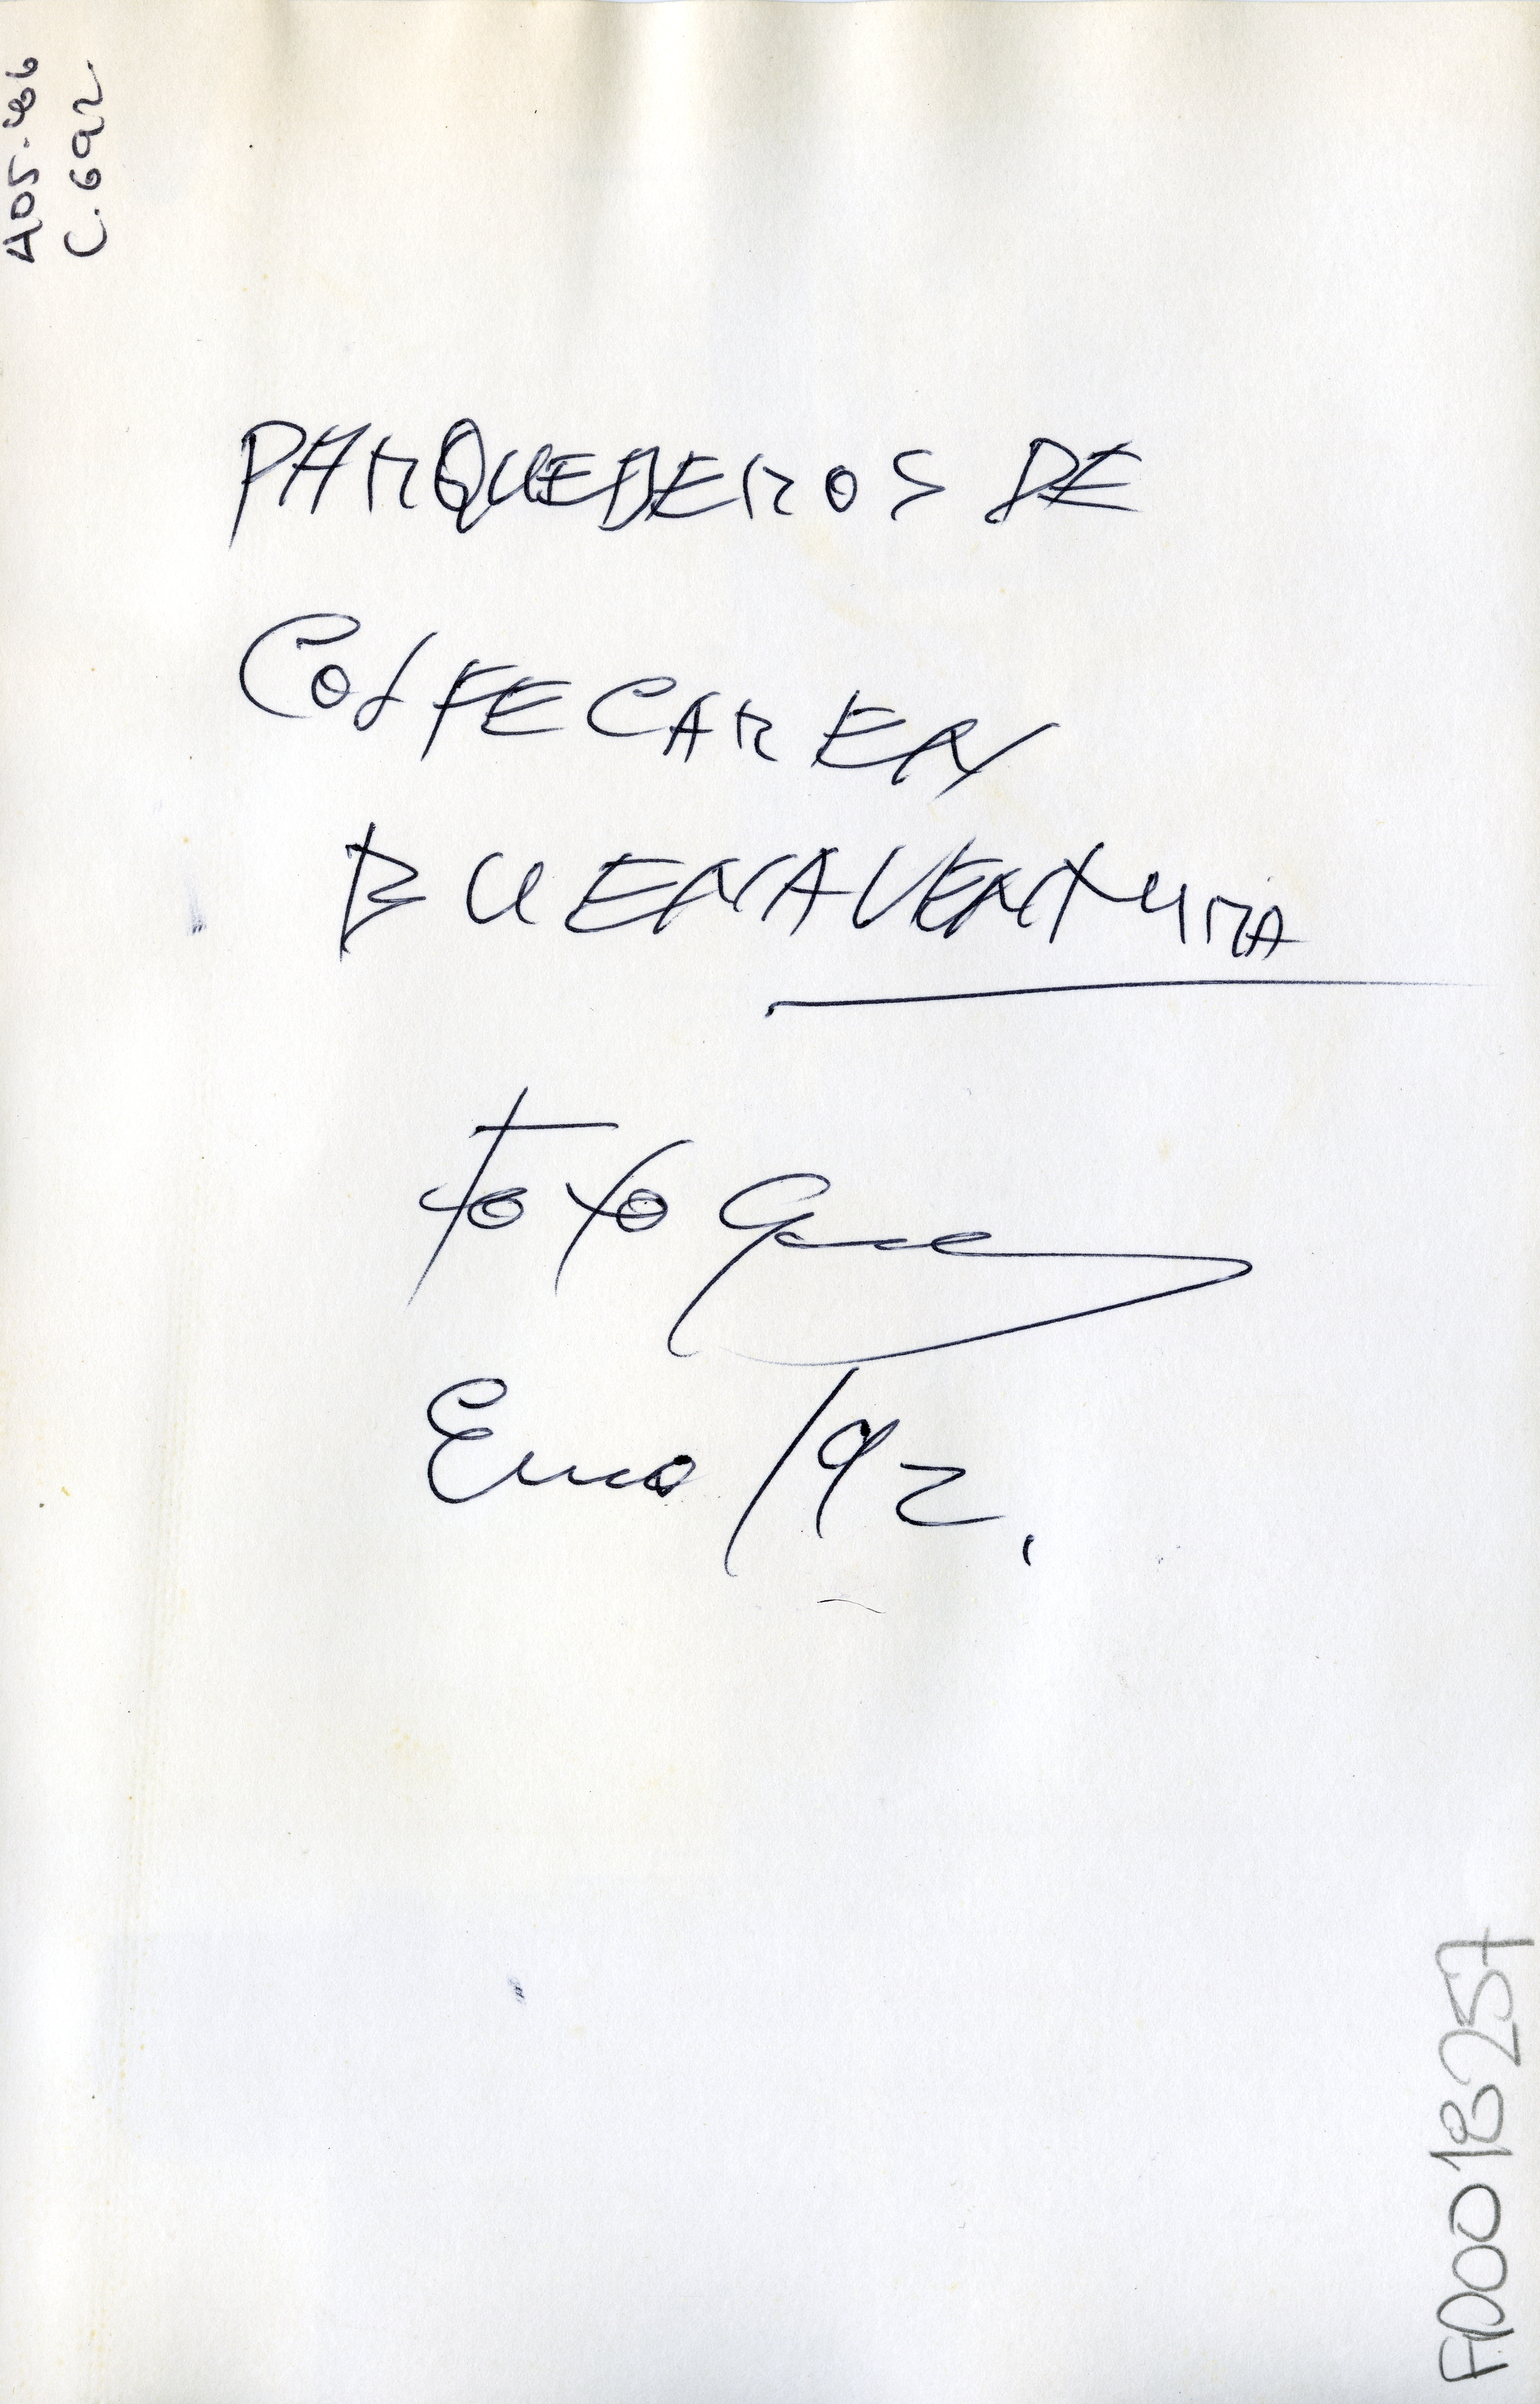 A05-486
C.692
PARQUEDEROS DE
COLFECAR EN
BUENAVENTURA
Foto
Enero/92.
FD0018257